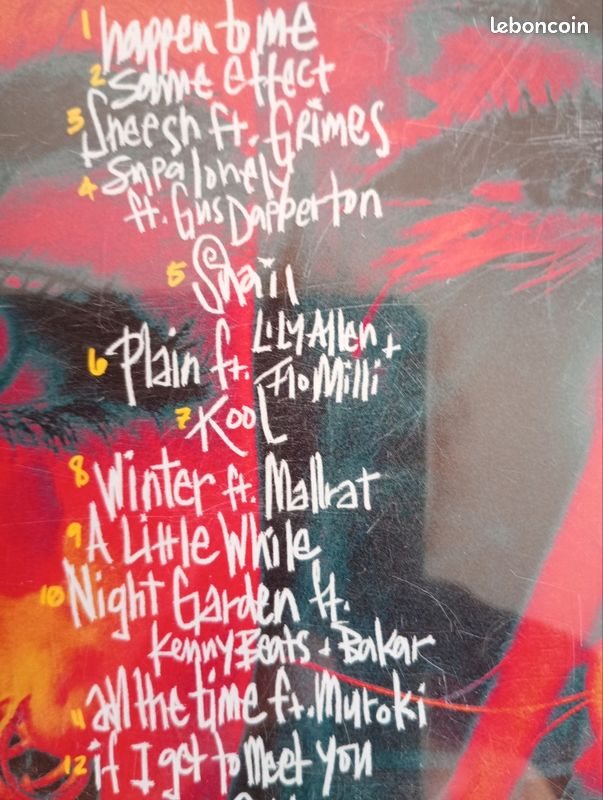 leboncoin
1 happen to me
2 same effect
3 Sheesh ft. Grimes
4 supalonely
ft. Gus Dapperton
5 Snail
6 Plain ft. LiLY Allen +
Flo Milli
7 KooL
8 Winter ft. Mallrat
9 A Little While
10 Night Garden ft.
Kenny Beats + Bakar
11 all the time ft. Muroki
12 if I get to meet you